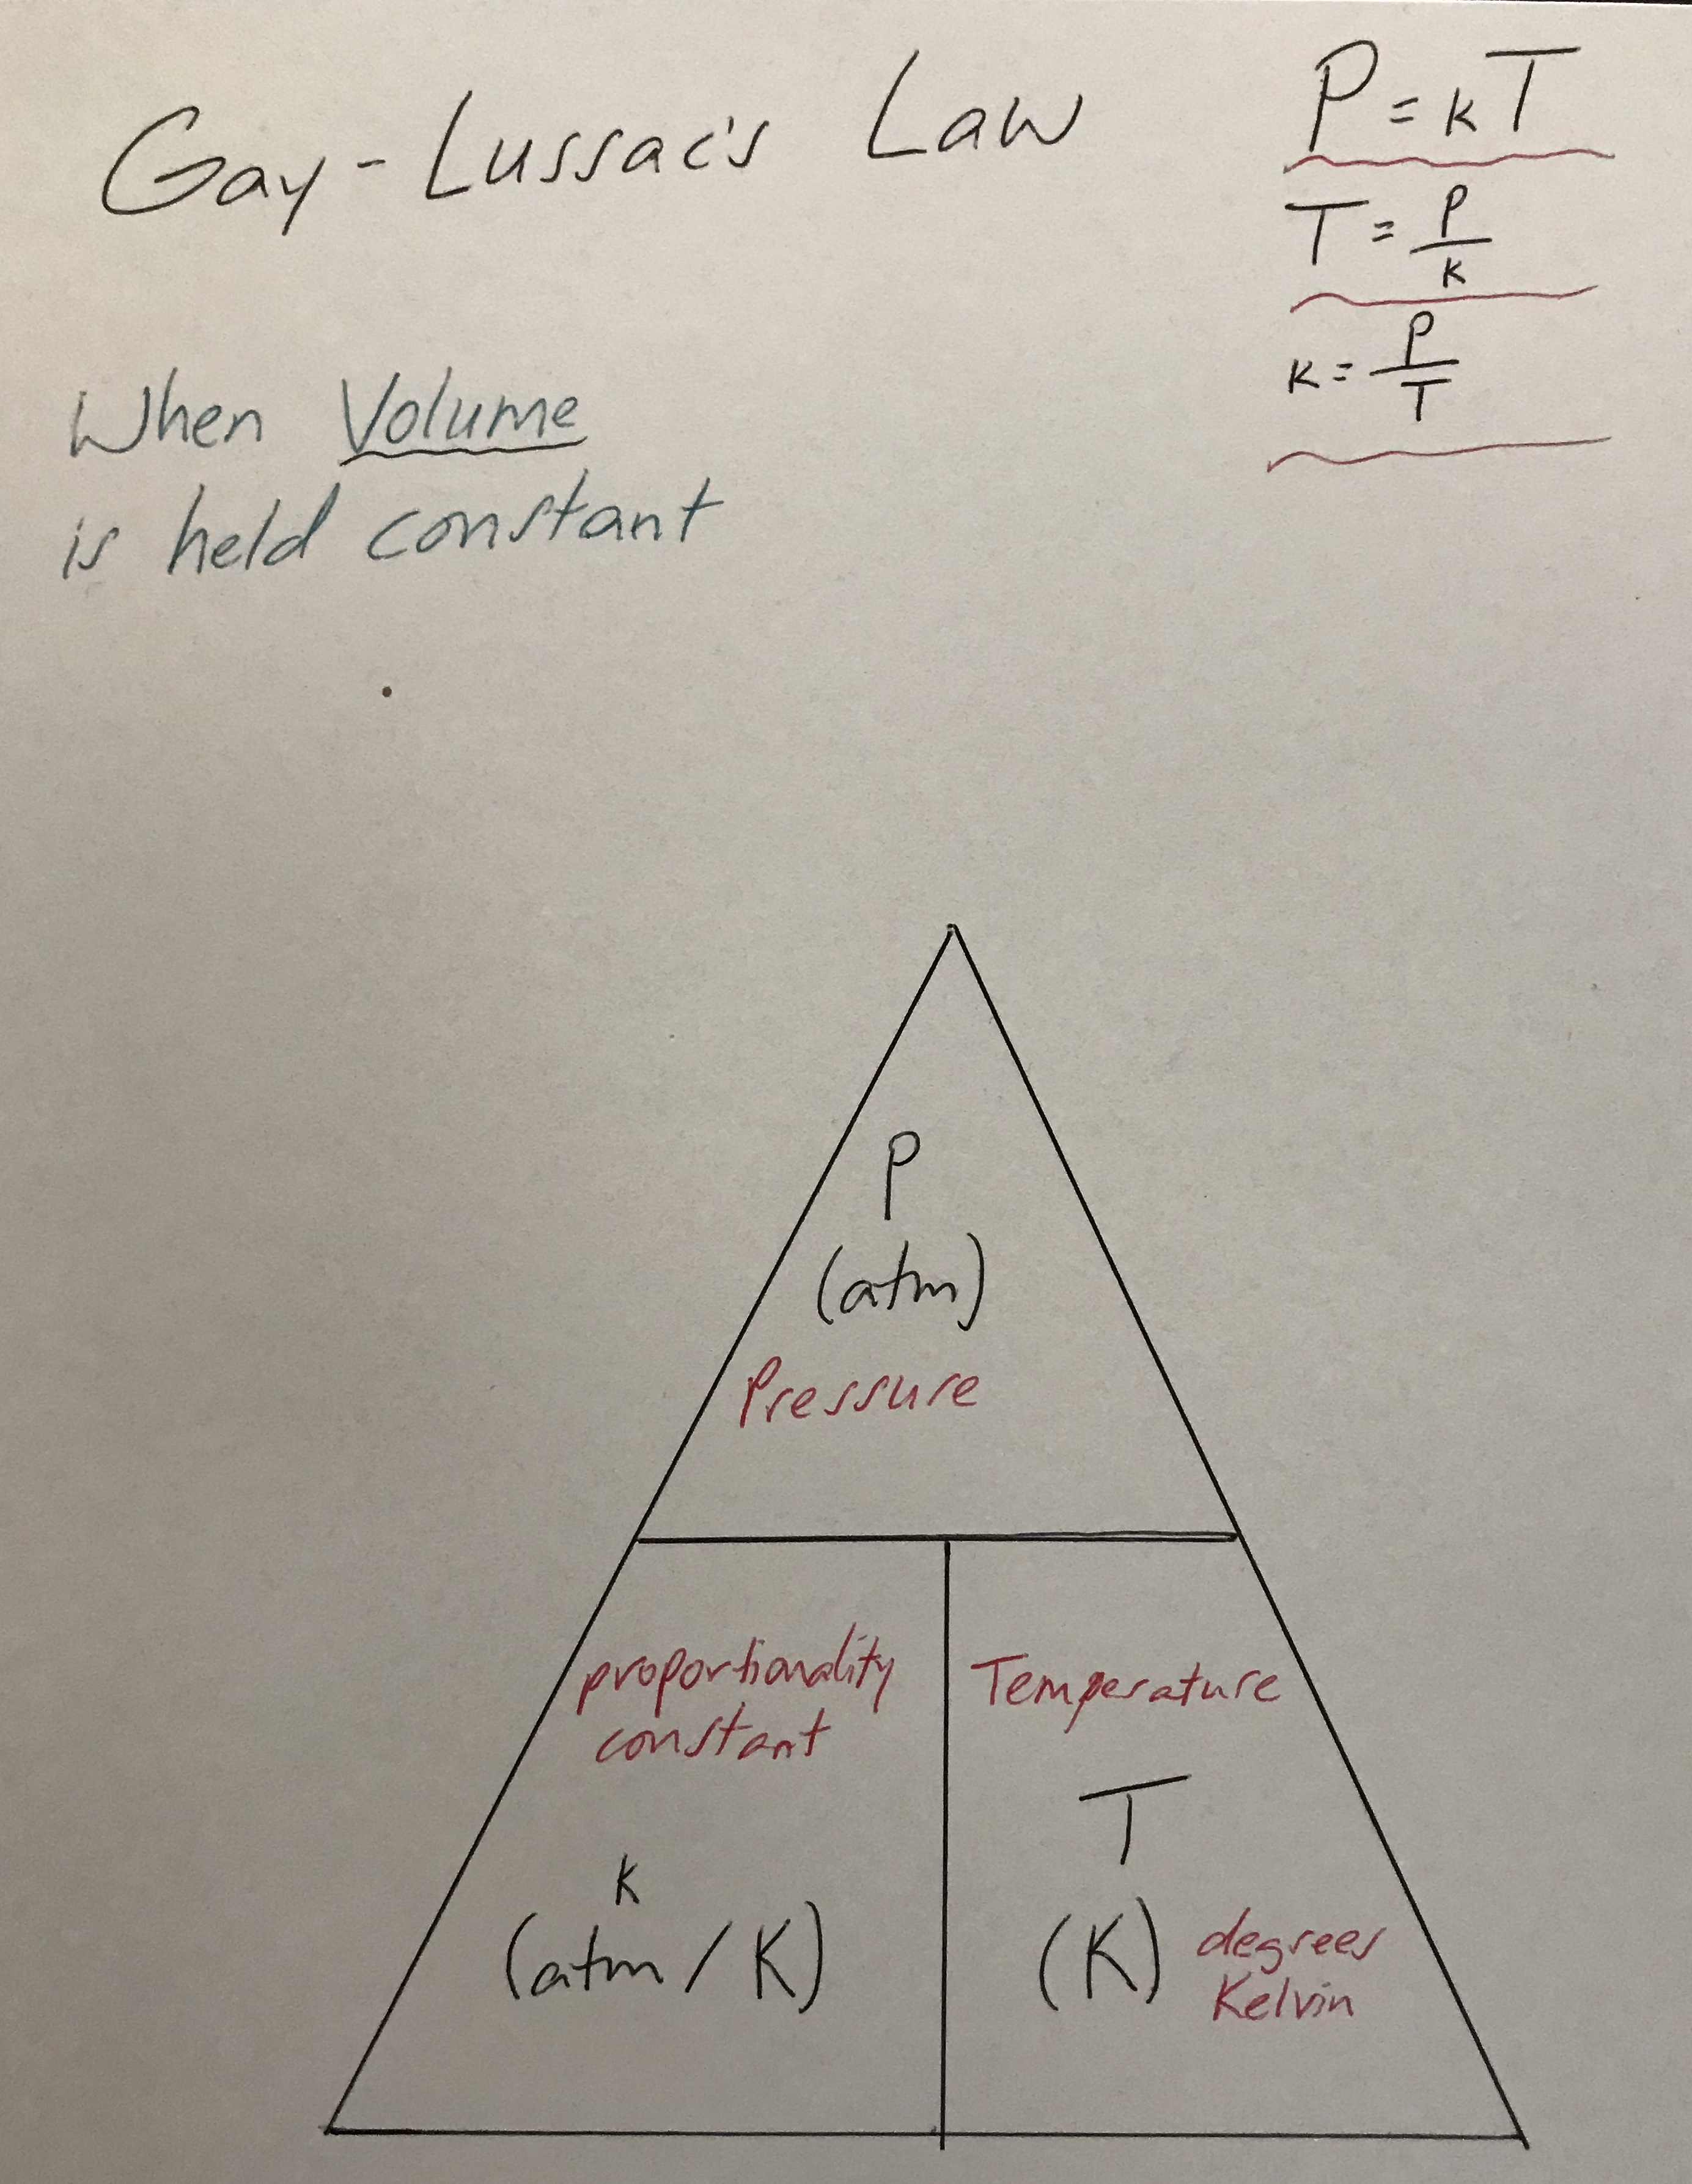 Gay-Lussac's Law
P = kT
T = P/k
k = P/T
When Volume
is held constant
P
(atm)
Pressure
proportionality
constant
k
(atm/K)
Temperature
T
(K) degrees
Kelvin